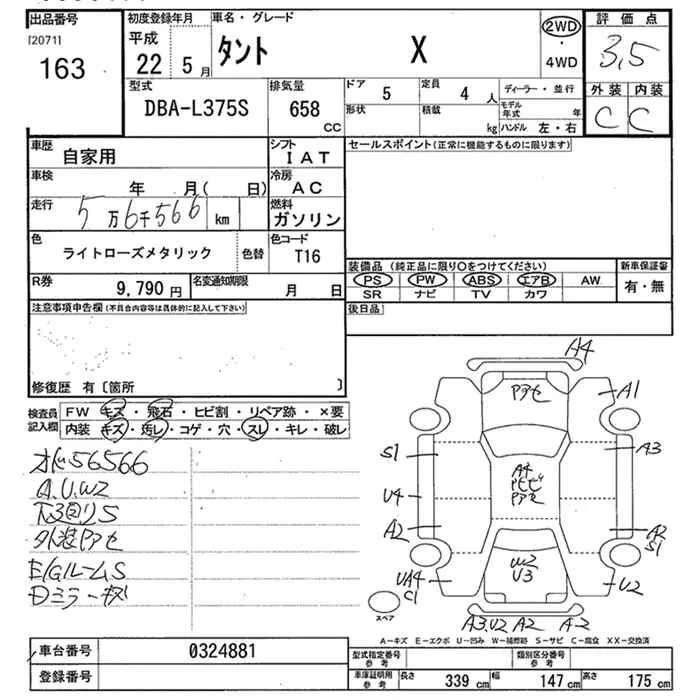 出品番号 初度登録年月 車名・グレード 評価点
[2071]
163
平成
22 5月
タント X
2WD
・
4WD
3.5
型式 排気量 ドア 定員 ディーラー・並行 外装 内装
DBA-L375S 658 CC 5 4人
形状 積載 kg モデル年式 年
ハンドル 左・右
C C
車歴 自家用 シフト IAT セールスポイント(正常に機能するものに限ります)
車検 年 月( 日) 冷房 AC
走行 5万6千566 km 燃料 ガソリン
色 ライトローズメタリック 色替 色コード T16
装備品 (純正品に限り〇をつけてください) 新車保証書
PS PW ABS エアB AW 有・無
SR ナビ TV カワ
R券 9,790円 名変通知期限 月 日
後日品
注意事項申告欄(不具合内容等は具体的に記入して下さい)
修復歴 有〔箇所 〕
検査員記入欄
FW キズ・飛石・ヒビ割・リペア跡・×要
内装 キズ・汚レ・コゲ・穴・スレ・キレ・破レ
56566
A.U.W2
下廻りS
外装Pアセ
E/GルームS
Dミラーキズ
A4
Pアセ
A1
S1
A3
A4
PヒビPアセ
U4
A2
A2
S1
W2
U3
UA4
C1
U2
スペア
A3.U2 A2 A-2
A-キズ E-エクボ U-凹み W-補修跡 S-サビ C-腐食 XX-交換済
車台番号 0324881
登録番号
型式指定番号 参考 類別区分番号 参考
車庫証明用 参考 長さ 339cm 幅 147cm 高さ 175cm